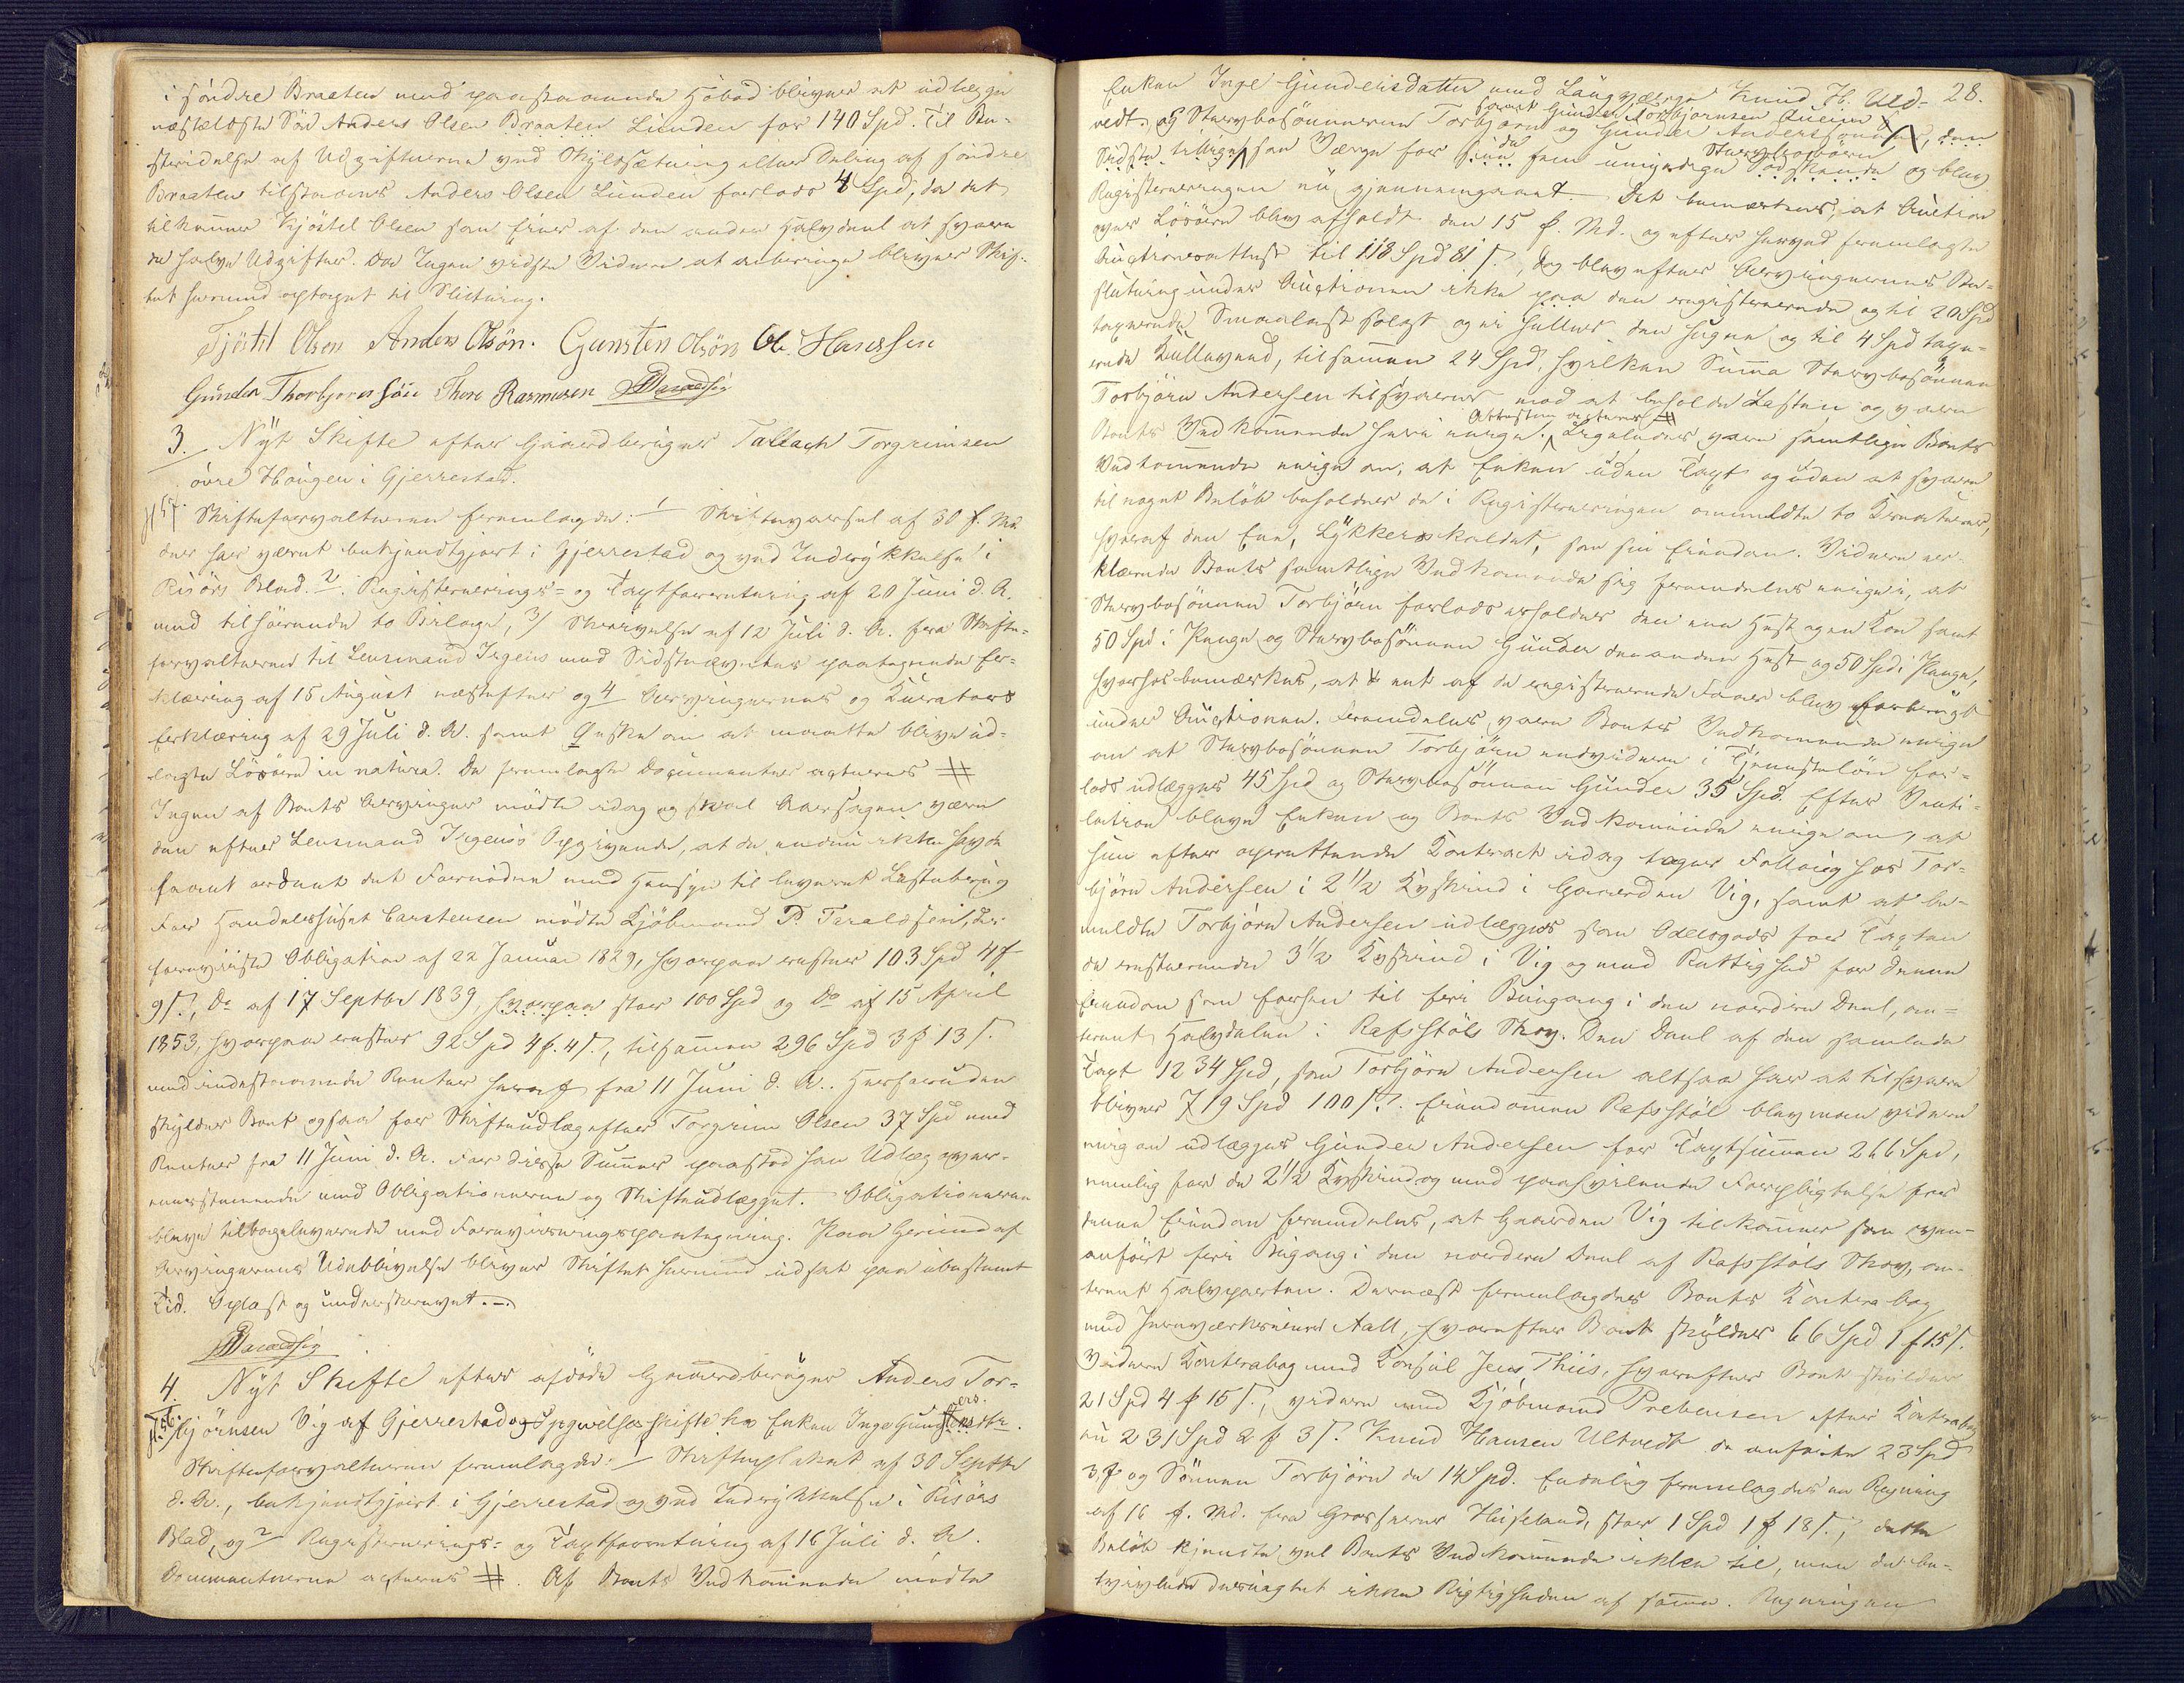 i søndre Braaten med paastaaende Høbod bliver at udlægge
næstældste Søn Anders Olsen Braaten Lunden for 140 Spd. Til Be-
stridelse af Udgifterne ved Skyldsætning eller Deling af søndre
Braaten tilstaaes Anders Olsen Lunden forlods 4 Spd, da det
tilkommer Kjøstel Olsen som Eier af den anden Halvdeel at svare
de halve Udgifter. Da Ingen vidste Videre at anbringe bliver Skif-
tet hermed optaget til Slutning.
Tjøstel Olsen Anders Olsön. Gunsten Olsön Ole Hanssen
Gunder Thorbjornsön Thore Rasmusen
3. Nyt Skifte efter Gaardbruger Tallach Torgrimsen
övre Haugen i Gjerrestad.
Skifteforvalteren fremlagde: 1 Skiftevarsel af 30 f. Md.
der har været bekjendtgjort i Gjerrestad og ved Indrykkelse i
Risörs Blad. 2. Registrerings- og Taxtforretning af 20 Juni d. A.
med tilhörende to Bilage, 3/ Skrivelse af 12 Juli d. A. fra Skifte-
forvalteren til Lensmand Irgens med Sidstnævntes paategnede Er-
klæring af 15 August næstefter og 4 Arvingernes og Kurators
Erklæring af 29 Juli d. A. samt Ønske om at maatte blive ud-
lagte Lösöre in natura. De fremlagte Documenter acteres #
Ingen af Boets Arvinger mödte idag og skal Aarsagen være
den efter Lensmand Irgens's Opgivende, at de endnu ikke havde
faaet ordnet det Fornödne med Hensyn til leveret Lastebrug
For Handelshuset Carstensen mödte Kjöbmand P. Taraldsen, der
foreviiste Obligation af 22 Januar 1829, hvorpaa rester 103 Spd 4 ƒ
9 ẞ, Do af 17 Septbr 1839, hvorpaa staar 100 Spd og Do af 15 April
1853, hvorpaa rester 92 Spd 4 ƒ. 4 ẞ, tilsammen 296 Spd 3 ƒ 13 ẞ.
med indestaaende Renter heraf fra 11 Juni d. A.. Herforuden
skylder Boet ogsaa for Skifteudlæg efter Torgrim Olsen 37 Spd med
Renter fra 11 Juni d. A. For disse Summer paastod han Udlæg over-
eensstemmende med Obligationerne og Skifteudlægget. Obligationerne
bleve tilbageleverede med Foreviisningspaategning. Paa Grund af
Arvingernes Udeblivelse bliver Skiftet hermed udsat paa ubestemt
Tid. Oplæst og underskrevet.
4. Nyt Skifte efter afdöde Gaardbruger Anders Tor-
björnsen Vig af Gjerrestad og Opgivelsesskifte hos Enken Inge Gundersdtr.
Skifteforvalteren fremlagde: 1 Skifteplakat af 30 Septbr
d. A., bekjendtgjort i Gjerrestad og ved Indrykkelse i Risörs
Blad, og 2 Registrerings- og Taxtforretning af 16 Juli d. A.
Documenterne acteres #. Af Boets Vedkommende mödte
28.
Enken Inge Gundersdatter med Laugværge Knud H. Ult-
samt Gunder Torbjornsen Lveim
vedt, og Stervbosönnerne Torbjørn og Gunder Anderssønner, den
Sidste tillige som Værge for de fem umyndige Stervbobørn og blev
Registreringen nu gjennemgaaet. Det bemærkes, at Auction
over Lösöre blev afholdt den 15 f. Md. og efter herved fremlagte
Auctionsattest til 118 Spd 81 ẞ, dog blev efter Arvingernes Be-
slutning under Auctionen ikke paa den registrerede og til 20 Spd
taxerede Smaalast solgt og ei heller den hugne og til 4 Spd taxe-
rede Kullaved, tilsammen 24 Spd, hvilken Summa Stervbosønnen
Torbjörn Andersen tilsvarer mod at beholde Lasten og vare
Boets Vedkommende heri enige. Attesten acteres # Ligeledes vare samtlige Boets
Vedkommende enige om, at Enken uden Taxt og uden at svare
til noget Belöb beholder de i Registreringen anmeldte to Kreaturer,
hvoraf den Ene, Lykkeros kaldet, som sin Eiendom. Videre er-
klærede Boets samtlige Vedkommende sig fremdeles enige i, at
Stervbosönnen Torbjörn forlods erholder den ene Hest og en Ko samt
50 Spd i Penge og Stervbosönnen Gunder den anden Hest og 50 Spd i Penge,
hvorhos bemærkes, at et af de registrerede Faar blev forbrugt
under Auctionen. Fremdeles vare Boets Vedkommende enige
om at Stervbosönnen Torbjörn endvidere i Tjenestelön for-
lods udlægges 45 Spd og Stervbosönnen Gunder 35 Spd. Efter Venti-
lation bleve Enken og Boets Vedkommende enige om, at
hun efter oprettende Kontract idag tager Fellaug hos Tor-
björn Andersen i 2 1/2 Kyskind i Gaarden Vig, samt at be-
meldte Torbjörn Andersen udlægges som Odelsgods for Taxten
de resterende 3 1/2 Kyskind i Vig og med Rettighed for denne
Eiendom som forhen til fri Bugang i den nordre Deel, om-
trent Halvdelen i Rafsstöls Skov. Den Deel af den samlede
Taxt 1234 Spd, som Torbjörn Andersen altsaa har at tilsvare
bliver 719 Spd 100 ẞ. Eiendommen Rafsstöl blev man videre
enig om udlægges Gunder Andersen for Taxtsummen 266 Spd,
nemlig for de 2 1/2 Kyskind og med paahvilende Forpligtelse for
denne Eiendom fremdeles, at Gaarden Vig tilkommer som oven-
anført fri Bugang i den nordre Deel af Rafsstöls Skov, om-
trent Halvparten. Dernæst fremlagdes Boets Kontrabog
med Jernværkseier Aall, hvorefter Boet skylder 66 Spd 1 ƒ 15 ẞ.
Videre Kontrabog med Konsul Jens Thiis, hvorefter Boet skylder
21 Spd 4 ƒ 15 ẞ, videre med Kjöbmand Prebensen efter Kontrabog
en 231 Spd 2 ƒ 3 ẞ. Knud Hansen Ultvedt de anførte 23 Spd
3 ƒ og Sönnen Torbjörn de 14 Spd. Endelig fremlagdes en Regning
af 16 f. Md. fra Grosserer Heiseland, stor 1 Spd 1 ƒ 18 ẞ, dette
Belöb kjendte vel Boets Vedkommende ikke til, men de be-
tvivlede desuagtet ikke Rigtigheden af samme. Regningen